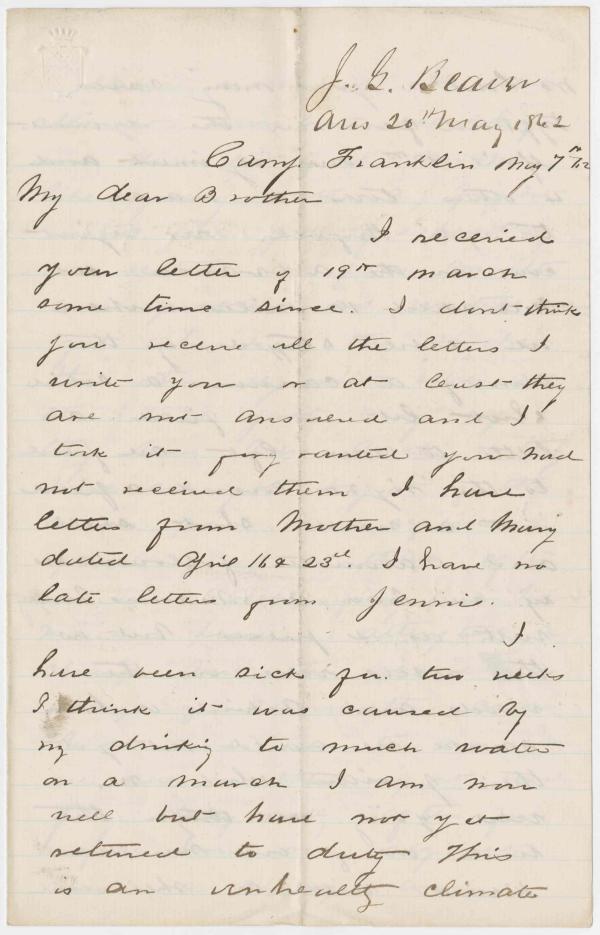 J. G. Bearn
Ans 20th May 1862
Camp Franklin May 7th 62
My dear Brother
I receried
your letter of 19th march
some time since. I dont think
you receive all the letters I
write you or at least they
are not answered and I
took it for granted you had
not received them I have
letters from Mother and Mary
dated April 16 & 23d. I have no
late letters from Jennie.
I
have been sick for two weeks
I think it was caused by
my drinking to much water
on a march I am now
well but have not yet
returned to duty This
is an unhealty climate